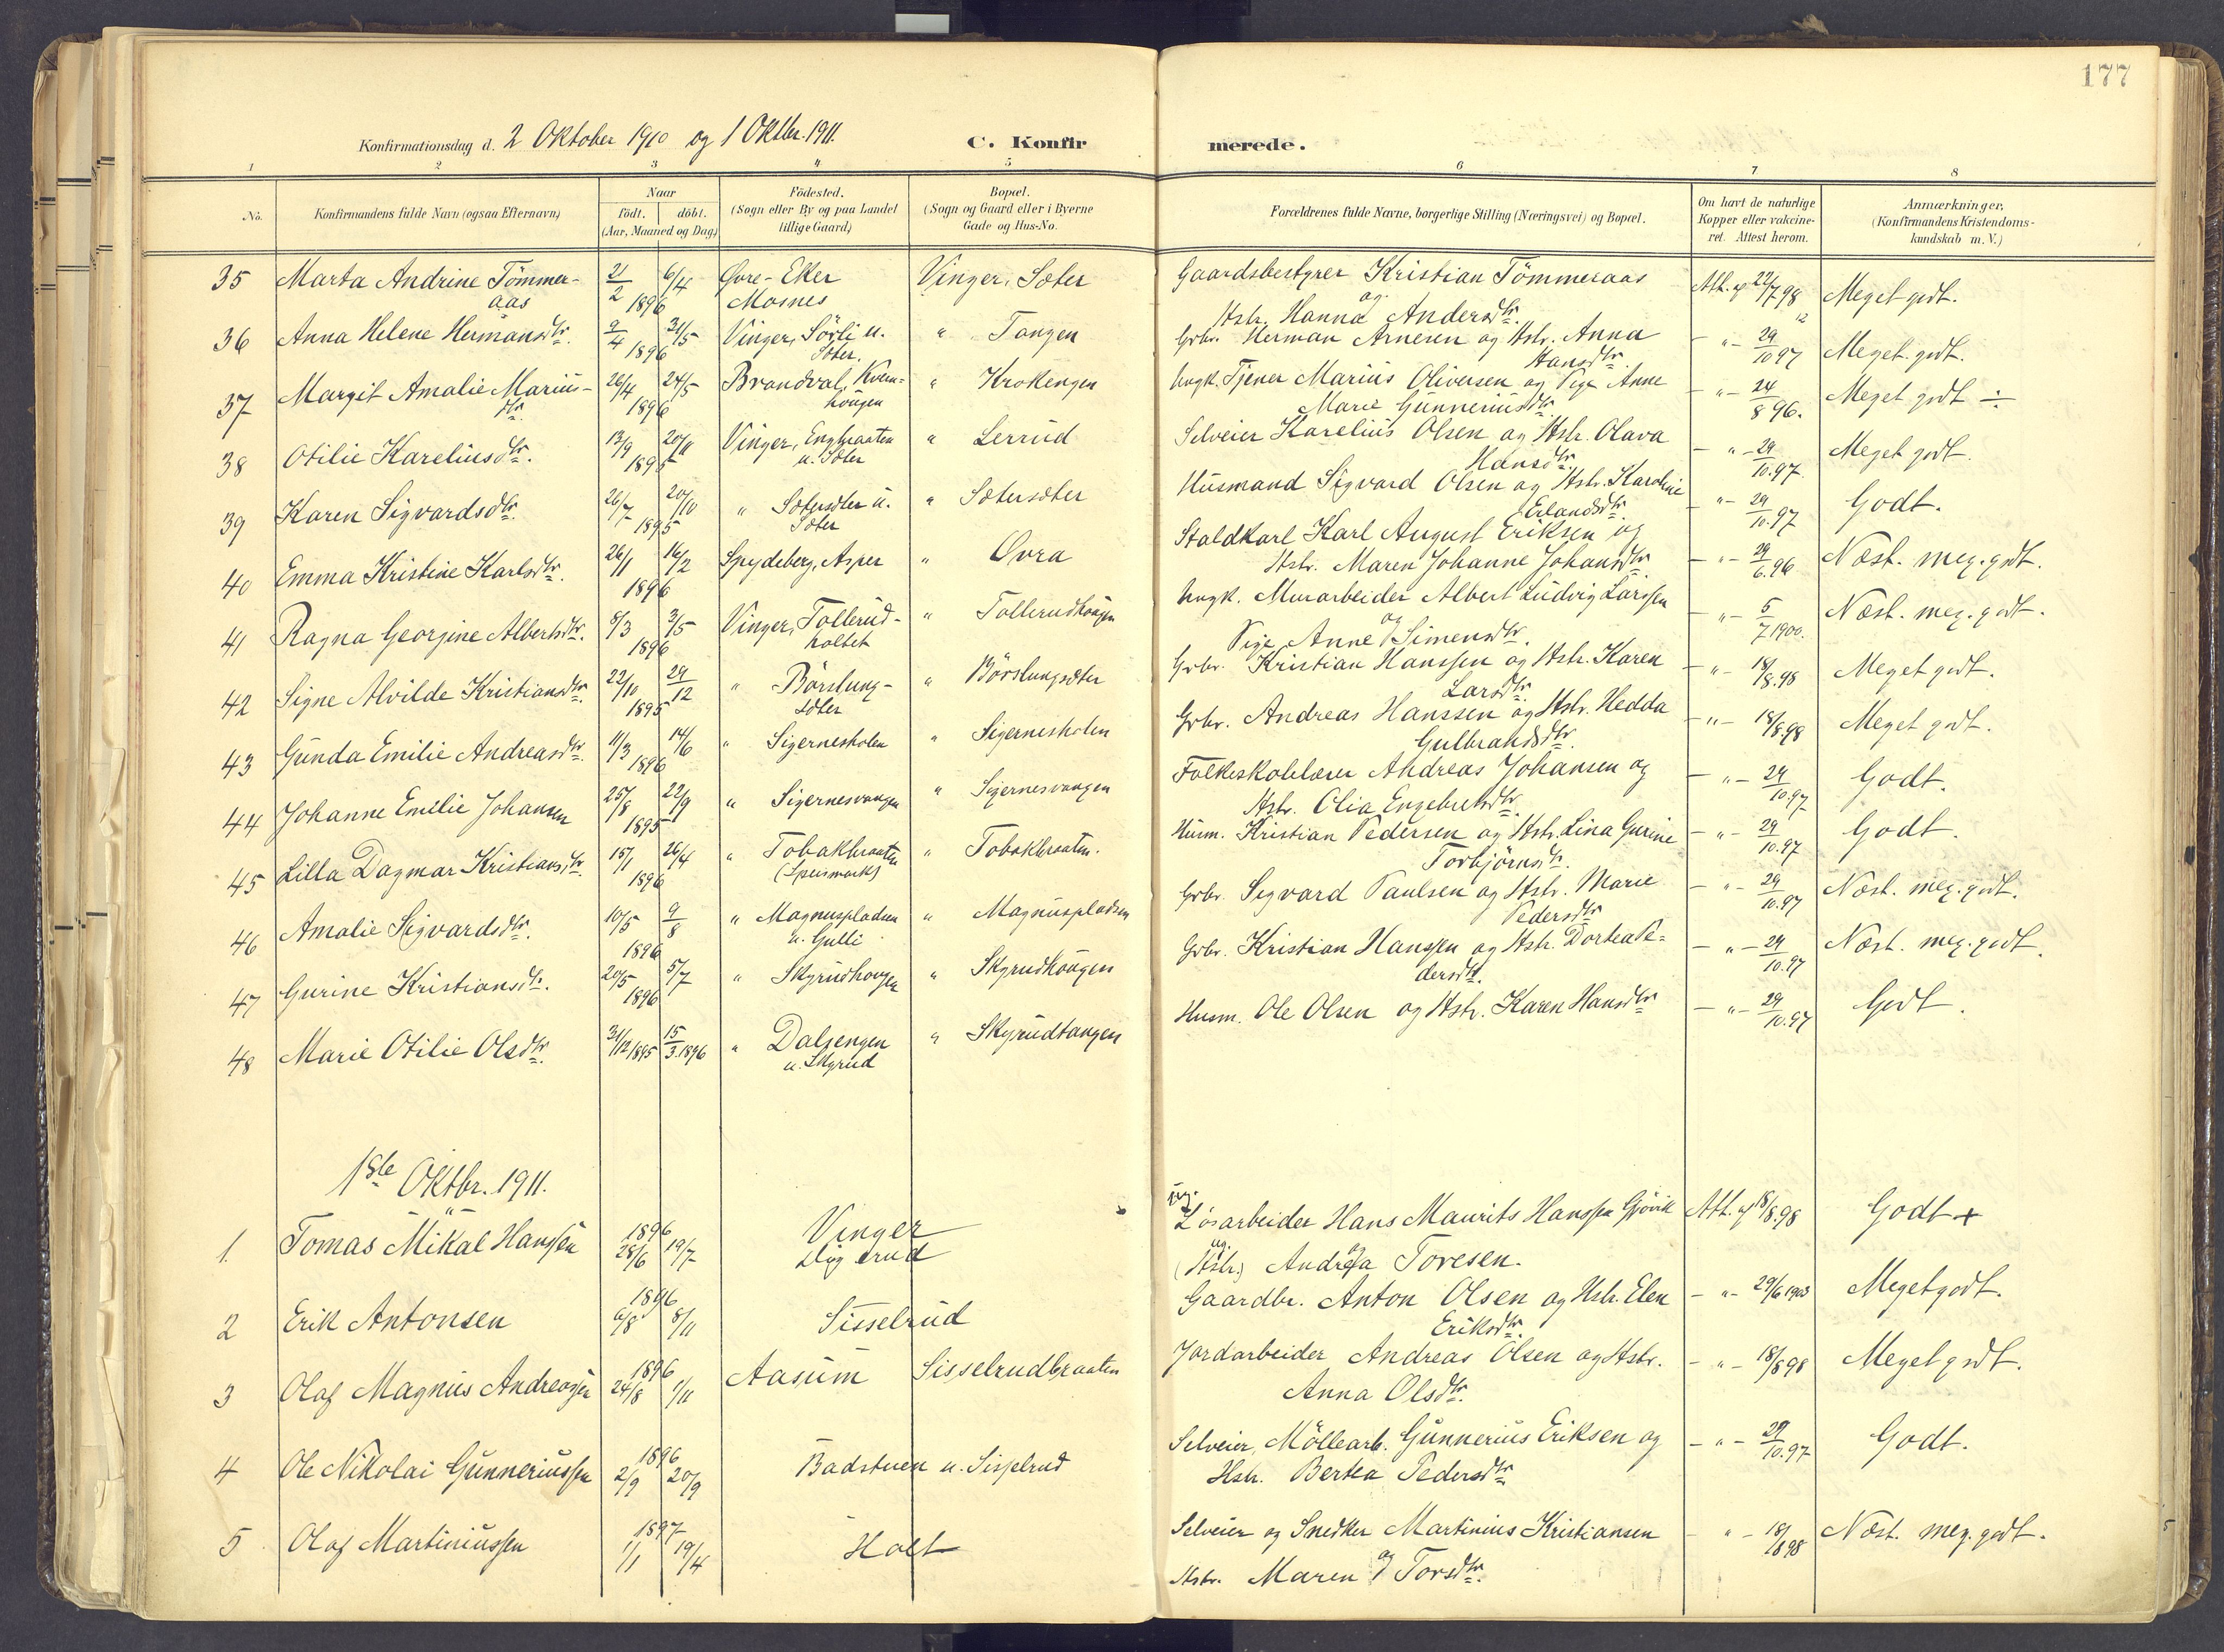 177
Konfirmationsdag d. 2 Oktober 1910 og 1 Oktbr. 1911.
C. Konfirmerede.
1 2 3 4 5 6 7 8
No. Konfirmandens fulde Navn (ogsaa Efternavn) Naar födt. döbt. (Aar, Maaned og Dag) Födested. (Sogn eller By og paa Landet tillige Gaard) Bopæl. (Sogn og Gaard eller i Byerne Gade og Hus-No. Forældrenes fulde Navne, borgerlige Stilling (Næringsvei) og Bopæl. Om havt de naturlige Kopper eller vakcineret. Attest herom. Anmærkninger. (Konfirmandens Kristendomskundskab m.V.)
35 Marta Andrine Tömmer- 21/2 6/4 Øvre-Eker Vinger, Sæter Gaardsbestyrer Kristian Tömmeraas Att. af 22/7 98 Meget godt.
aas 1896 Mosnes og Hstr. Hanna Andersdtr.
36 Anna Helene Hermansdtr. 9/4 31/5 Vinger, Sörli u. " Tangen Grbr. Herman Arnesen og Hstr. Anna - " - 29/10 97 Meget godt.
1896 Sæter. Hansdtr.
37 Margit Amalie Marius- 26/4 24/5 Brandval, Kvem- " Krokengen Ungk. Tjener Marius Oliversen og Pige Anne - " - 24/8 96. Meget godt ÷
dtr. 1896 haugen Marie Gunneriusdtr.
38 Otilie Kareliusdtr. 13/9 20/11 Vinger, Engbraaten " Lerrud Selveier Karelius Olsen og Hstr. Olava - " - 29/10.97. Meget godt.
1895 u. Sæter Hansdtr.
39 Karen Sigvardsdtr. 26/7 20/10 " Sætersæter u. " Sætersæter Husmand Sigvard Olsen og Hstr. Karoline - " - 29/10.97 Godt.
1895 Sæter Erlandsdtr.
40 Emma Kristine Karlsdtr. 26/1 16/2 Spydeberg, Asper " Øvra Staldkarl Karl August Eriksen og - " - 29/6.96 Næst. meg. godt.
1896 Hstr. Maren Johanne Johansdtr.
41 Ragna Georgine Albertsdtr. 8/3 3/5 Vinger, Tollerud- " Tollerudhaugen Ungk. Murarbeider Albert Ludvig Larssen - " - 5/7 1900. Næst. meg. godt.
1896 holtet og Pige Anne Simensdtr.
42 Signe Alvilde Kristiansdtr. 22/10 29/12 " Börslung- " Börslungsæter Grbr. Kristian Hanssen og Hstr. Karen - " - 18/8.98 Meget godt.
1895 sæter Larsdtr.
43 Gunda Emilie Andreasdtr. 11/3 14/6 " Sigernesholen " Sigernesholen Grbr. Andreas Hanssen og Hstr. Hedda - " - 18/8.98 Meget godt.
1896 Gulbrandsdtr.
44 Johanne Emilie Johansen 25/8 22/9 " Sigernesvangen " Sigernesvangen Folkeskolelærer Andreas Johansen og - " - 29/10.97 Godt.
1895 Hstr. Olia Engebretsdtr.
45 Lilla Dagmar Kristiansdtr. 15/1 26/4 " Tobakbraaten " Tobakbraaten. Husm. Kristian Pedersen og Hstr. Lina Gurine - " - 29/10.97 Godt.
1896 Torbjörnsdtr.
46 Amalie Sigvardsdtr. 10/5 9/8 " Magnuspladsen " Magnuspladsen Grbr. Sigvard Paulsen og Hstr. Marie - " - 29/10.97 Næst. meg. godt.
1896 u. Gulli Pedersdtr
47 Gurine Kristiansdtr. 20/5 5/7 " Skyrudhaugen " Skyrudhaugen Grbr. Kristian Hanssen og Hstr. Dortea Pe- - " - 29/10.97 Næst. meg. godt.
1896 dersdtr.
48 Marie Otilie Olsdtr. 31/12 1895 15/3.1896 " Dalsengen " Skyrudtangen Husm. Ole Olsen og Hstr. Karen Hansdtr - " - 29/10.97 Godt.
u. Skyrud
1ste Oktbr. 1911.
1. Tomas Mikal Hanssen 1896 28/6 19/7 Vinger Løsarbeider Hans Maurits Hanssen Gjövik Att. af 18/8.98 Godt +
Digerud (Hstr.) og Andrea Toresen.
2 Erik Antonsen 1896 6/8 8/11 Sisselrud Gaardbr. Anton Olsen og Hstr. Elen - " - 29/6 1903 Meget godt.
Eriksdtr.
3 Olaf Magnus Andreassen 1896 24/8 1/11 Aasum Sisselrudbraaten Jordarbeider Andreas Olsen og Hstr. - " - 18/8 98 Meget godt.
Anna Olsdtr.
4 Ole Nikolai Gunneriussen 1896 2/9 20/9 Badstuen u. Sisselrud Selveier, Möllearb. Gunnerius Eriksen og - " - 29/10.97 Godt.
Hstr. Bertea Pedersdtr
5 Olaf Martiniussen 1897 1/1 19/4 Holt Selveier og Snedker Martinius Kristiansen - " - 18/8 98 Næst. meg. godt.
og Hstr. Maren Torsdtr.